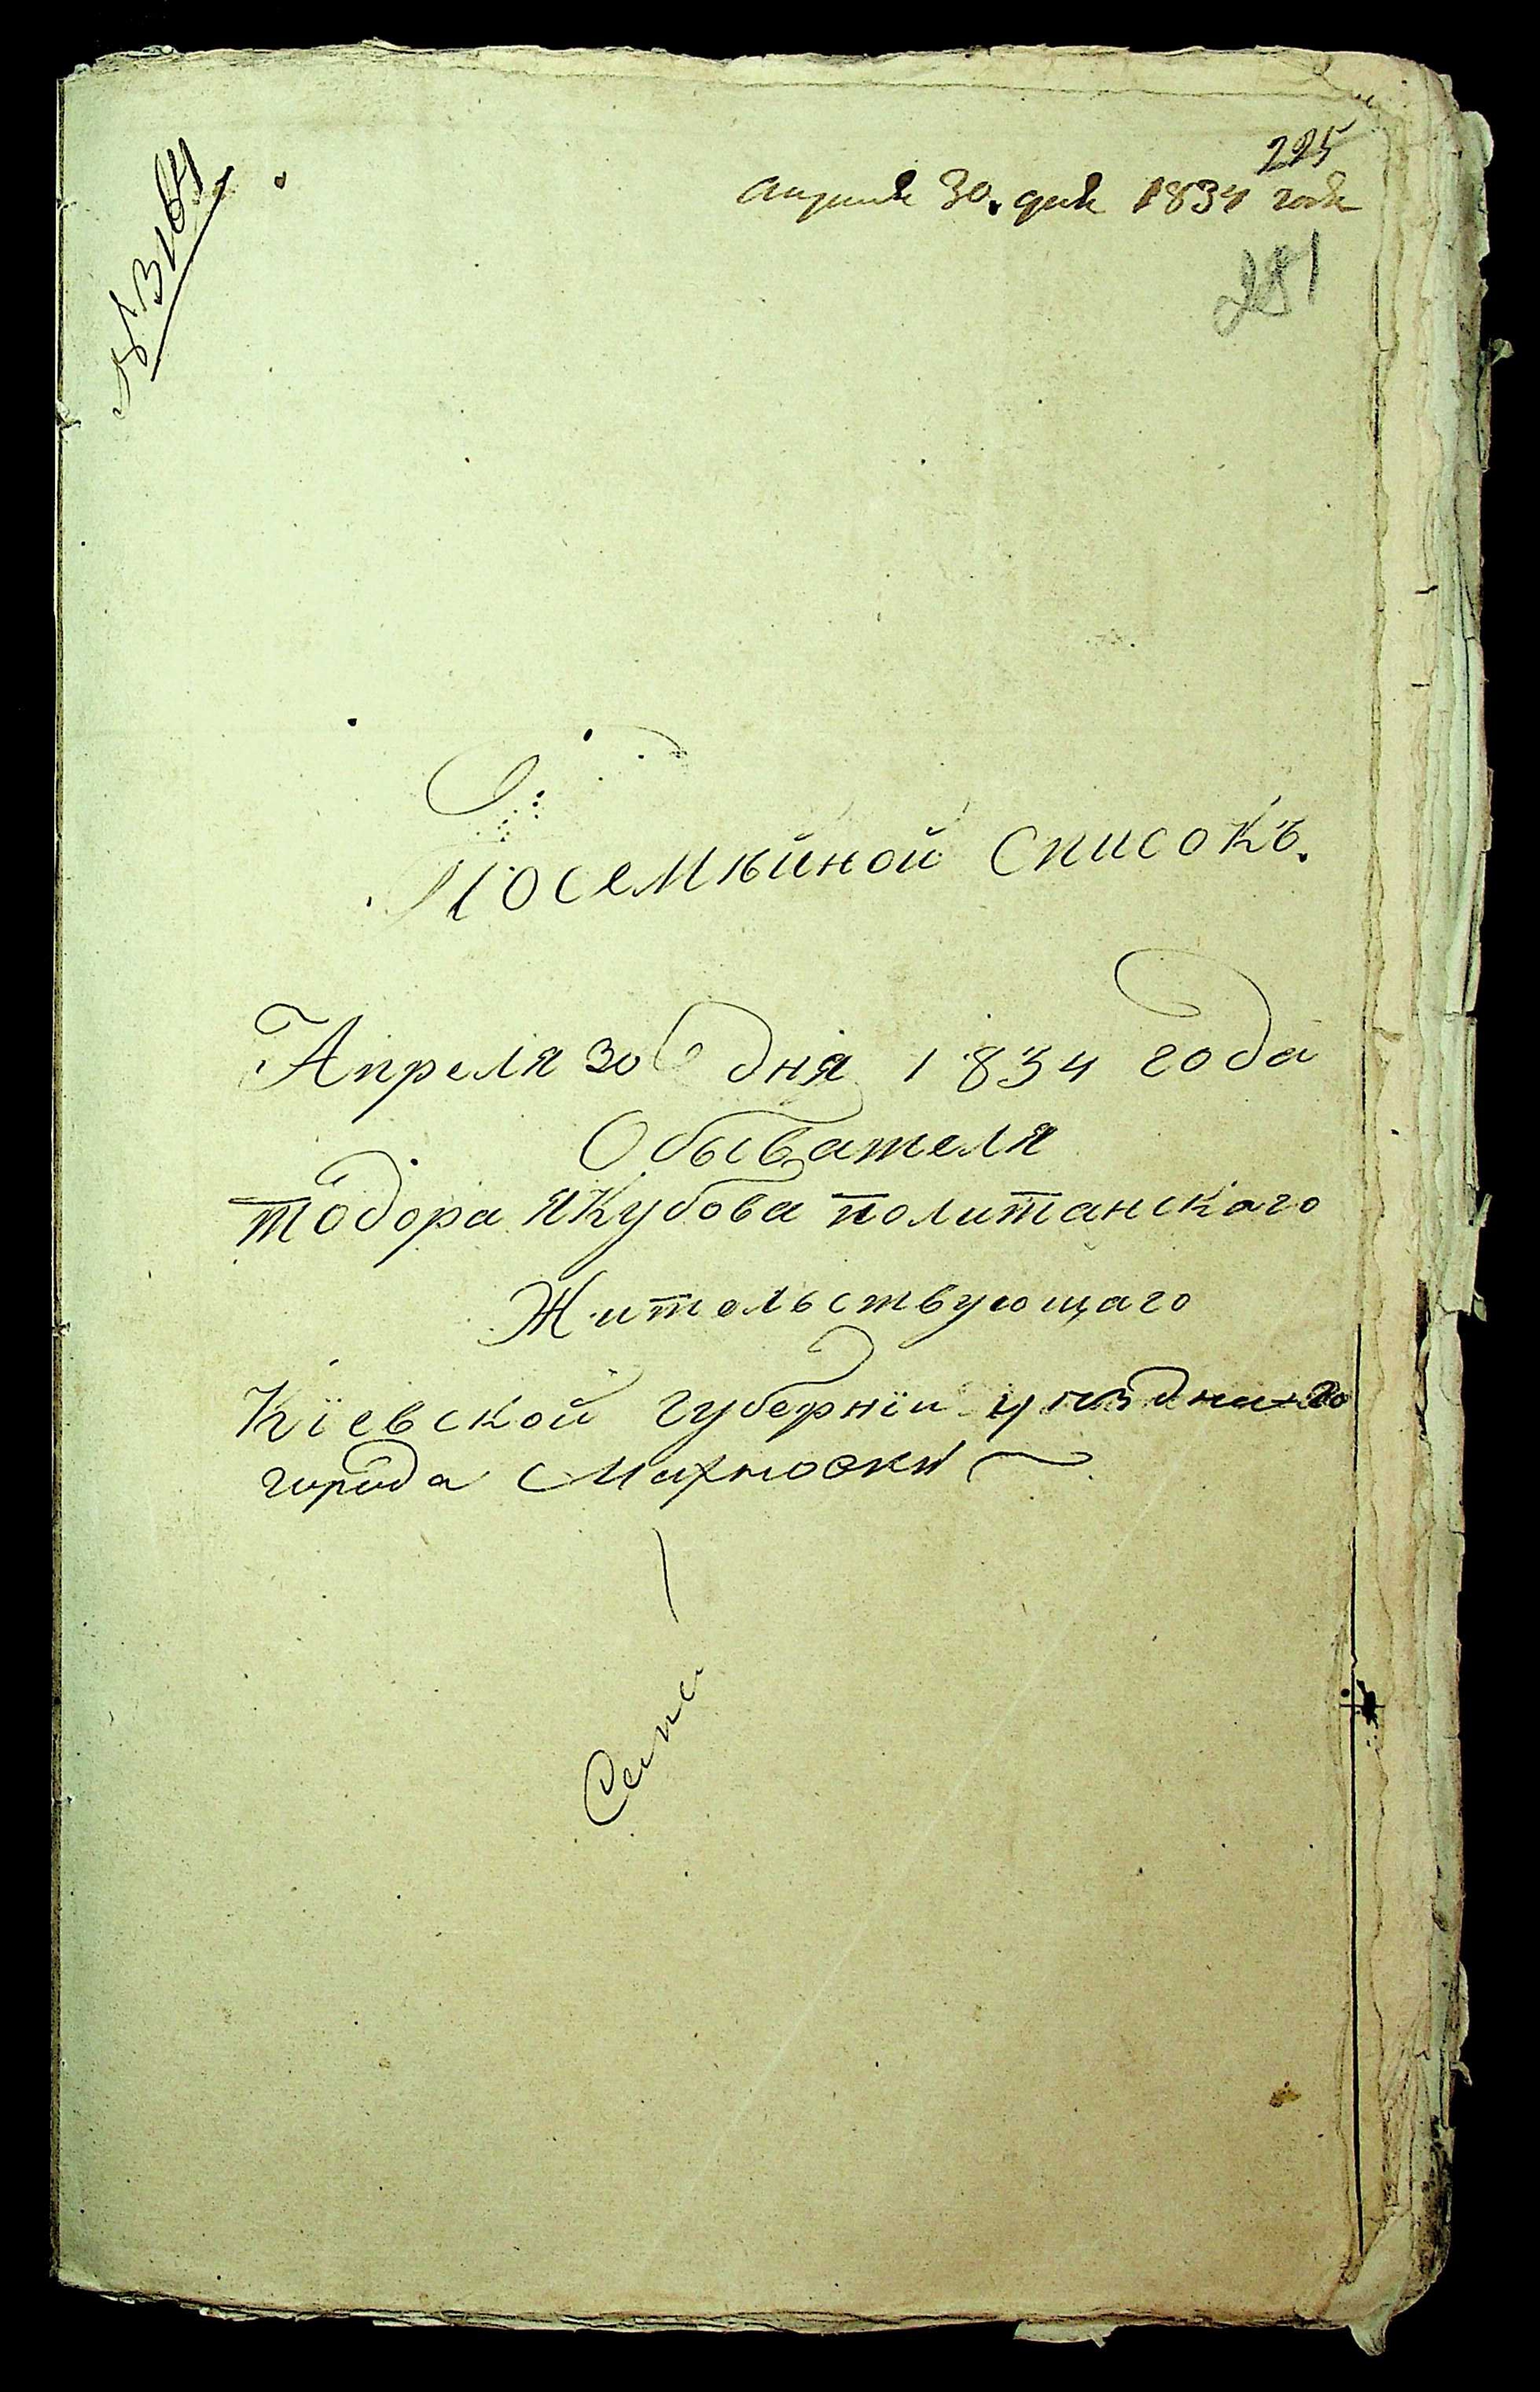 225
апреля 30. дня 1834 года
281
№ 3164
Посемѣйной Списокъ.
Апреля 30 дня 1834 года
Обывателя
тодора Якубова политанскаго
Жительствующаго
Кіевской губерніи уѣзднаго
города Махновки